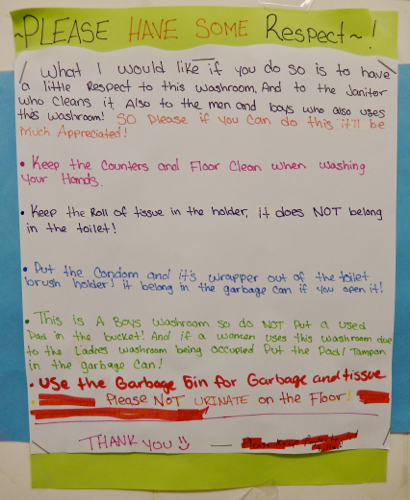 ~PLEASE HAVE SOME Respect~!
What I would like if you do so is to have
a little Respect to this washroom. And to the Janitor
who cleans it. Also to the men and boys who also uses
this washroom! SO please if you can do this it'll be
Much Appreciated!
• Keep the Counters and Floor Clean when washing
your Hands.
• Keep the Roll of tissue in the holder, it does NOT belong
in the toilet!
• Put the Condom and it's wrapper out of the toilet
brush holder! it belong in the garbage can if you open it!
• This is A Boys Washroom so do NOT Put a used
Pad in the bucket! And if a women uses this washroom due
to the Ladies washroom being occupied Put the Pad/Tampon
in the garbage can!
• USE the Garbage bin for Garbage and tissue
• Please NOT URINATE on the Floor!
THANK YOU —